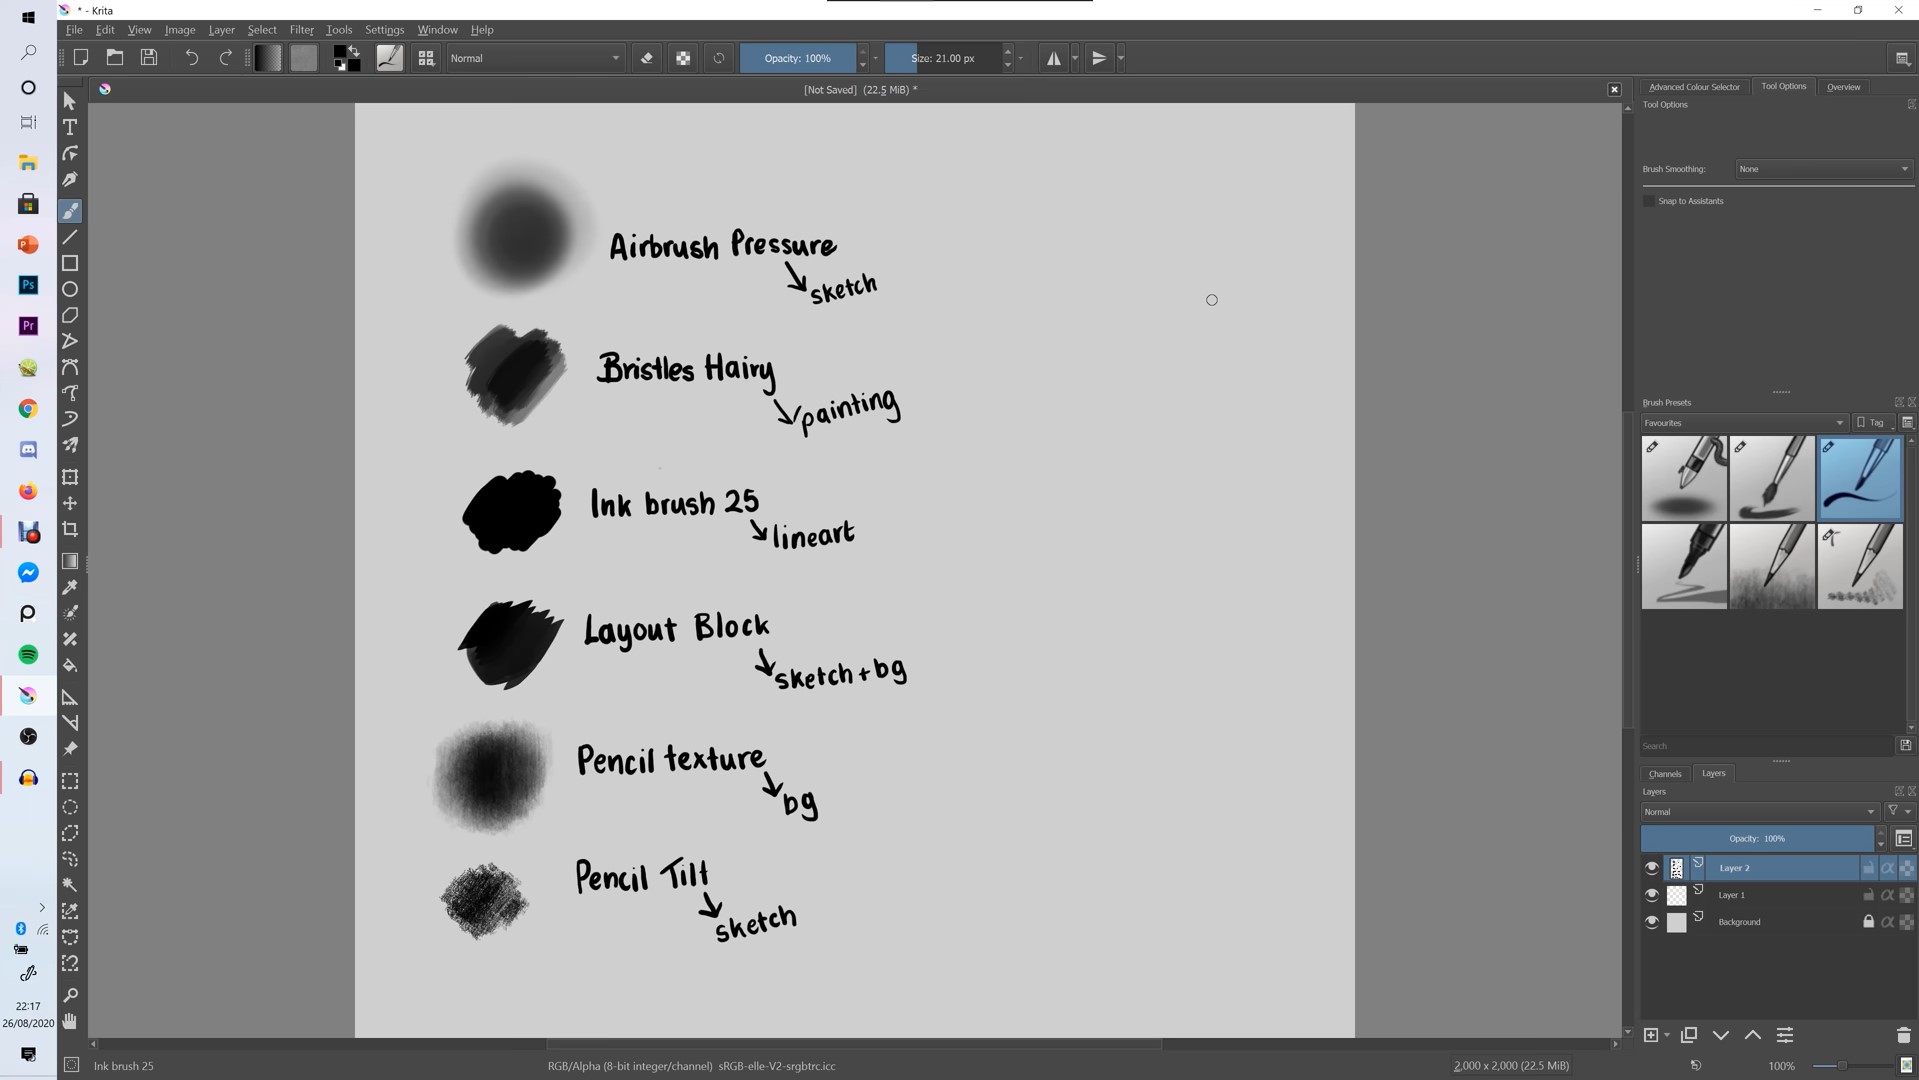 * - Krita
File Edit View Image Layer Select Filter Tools Settings Window Help
Normal
Opacity: 100%
Size: 21.00 px
[Not Saved] (22.5 MiB) *
Airbrush Pressure
sketch
Bristles Hairy
painting
Ink brush 25
lineart
Layout Block
sketch + bg
Pencil texture
bg
Pencil Tilt
sketch
Advanced Colour Selector Tool Options Overview
Tool Options
Brush Smoothing: None
Snap to Assistants
Brush Presets
Favourites Tag
Search
Channels Layers
Layers
Normal
Opacity: 100%
Layer 2
Layer 1
Background
Ps
Pr
P
22:17
26/08/2020
Ink brush 25
RGB/Alpha (8-bit integer/channel) sRGB-elle-V2-srgbtrc.icc
2,000 x 2,000 (22.5 MiB)
100%